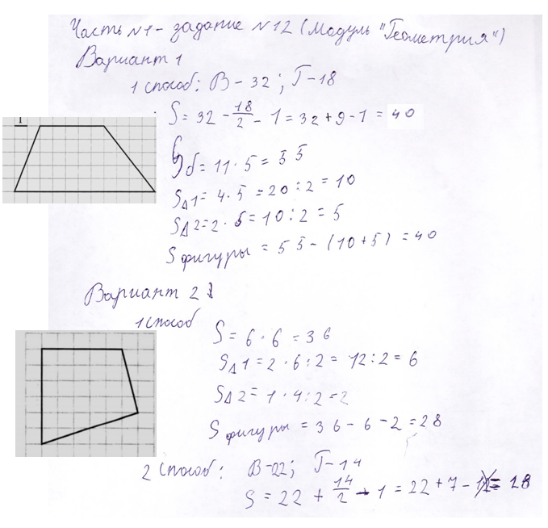 Часть №1 - задание №12 (Модуль "Геометрия")
Вариант 1
1 способ: В - 32; Г - 18
S = 32 - 18/2 - 1 = 32 + 9 - 1 = 40
Sб = 11 · 5 = 55
S△1 = 4 · 5 = 20 : 2 = 10
S△2 = 2 · 5 = 10 : 2 = 5
S фигуры = 55 - (10 + 5) = 40
Вариант 2
1 способ
S = 6 · 6 = 36
S△1 = 2 · 6 : 2 = 12 : 2 = 6
S△2 = 1 · 4 : 2 = 2
S фигуры = 36 - 6 - 2 = 28
2 способ: В - 22; Г - 14
S = 22 + 14/2 - 1 = 22 + 7 - 1 = 28